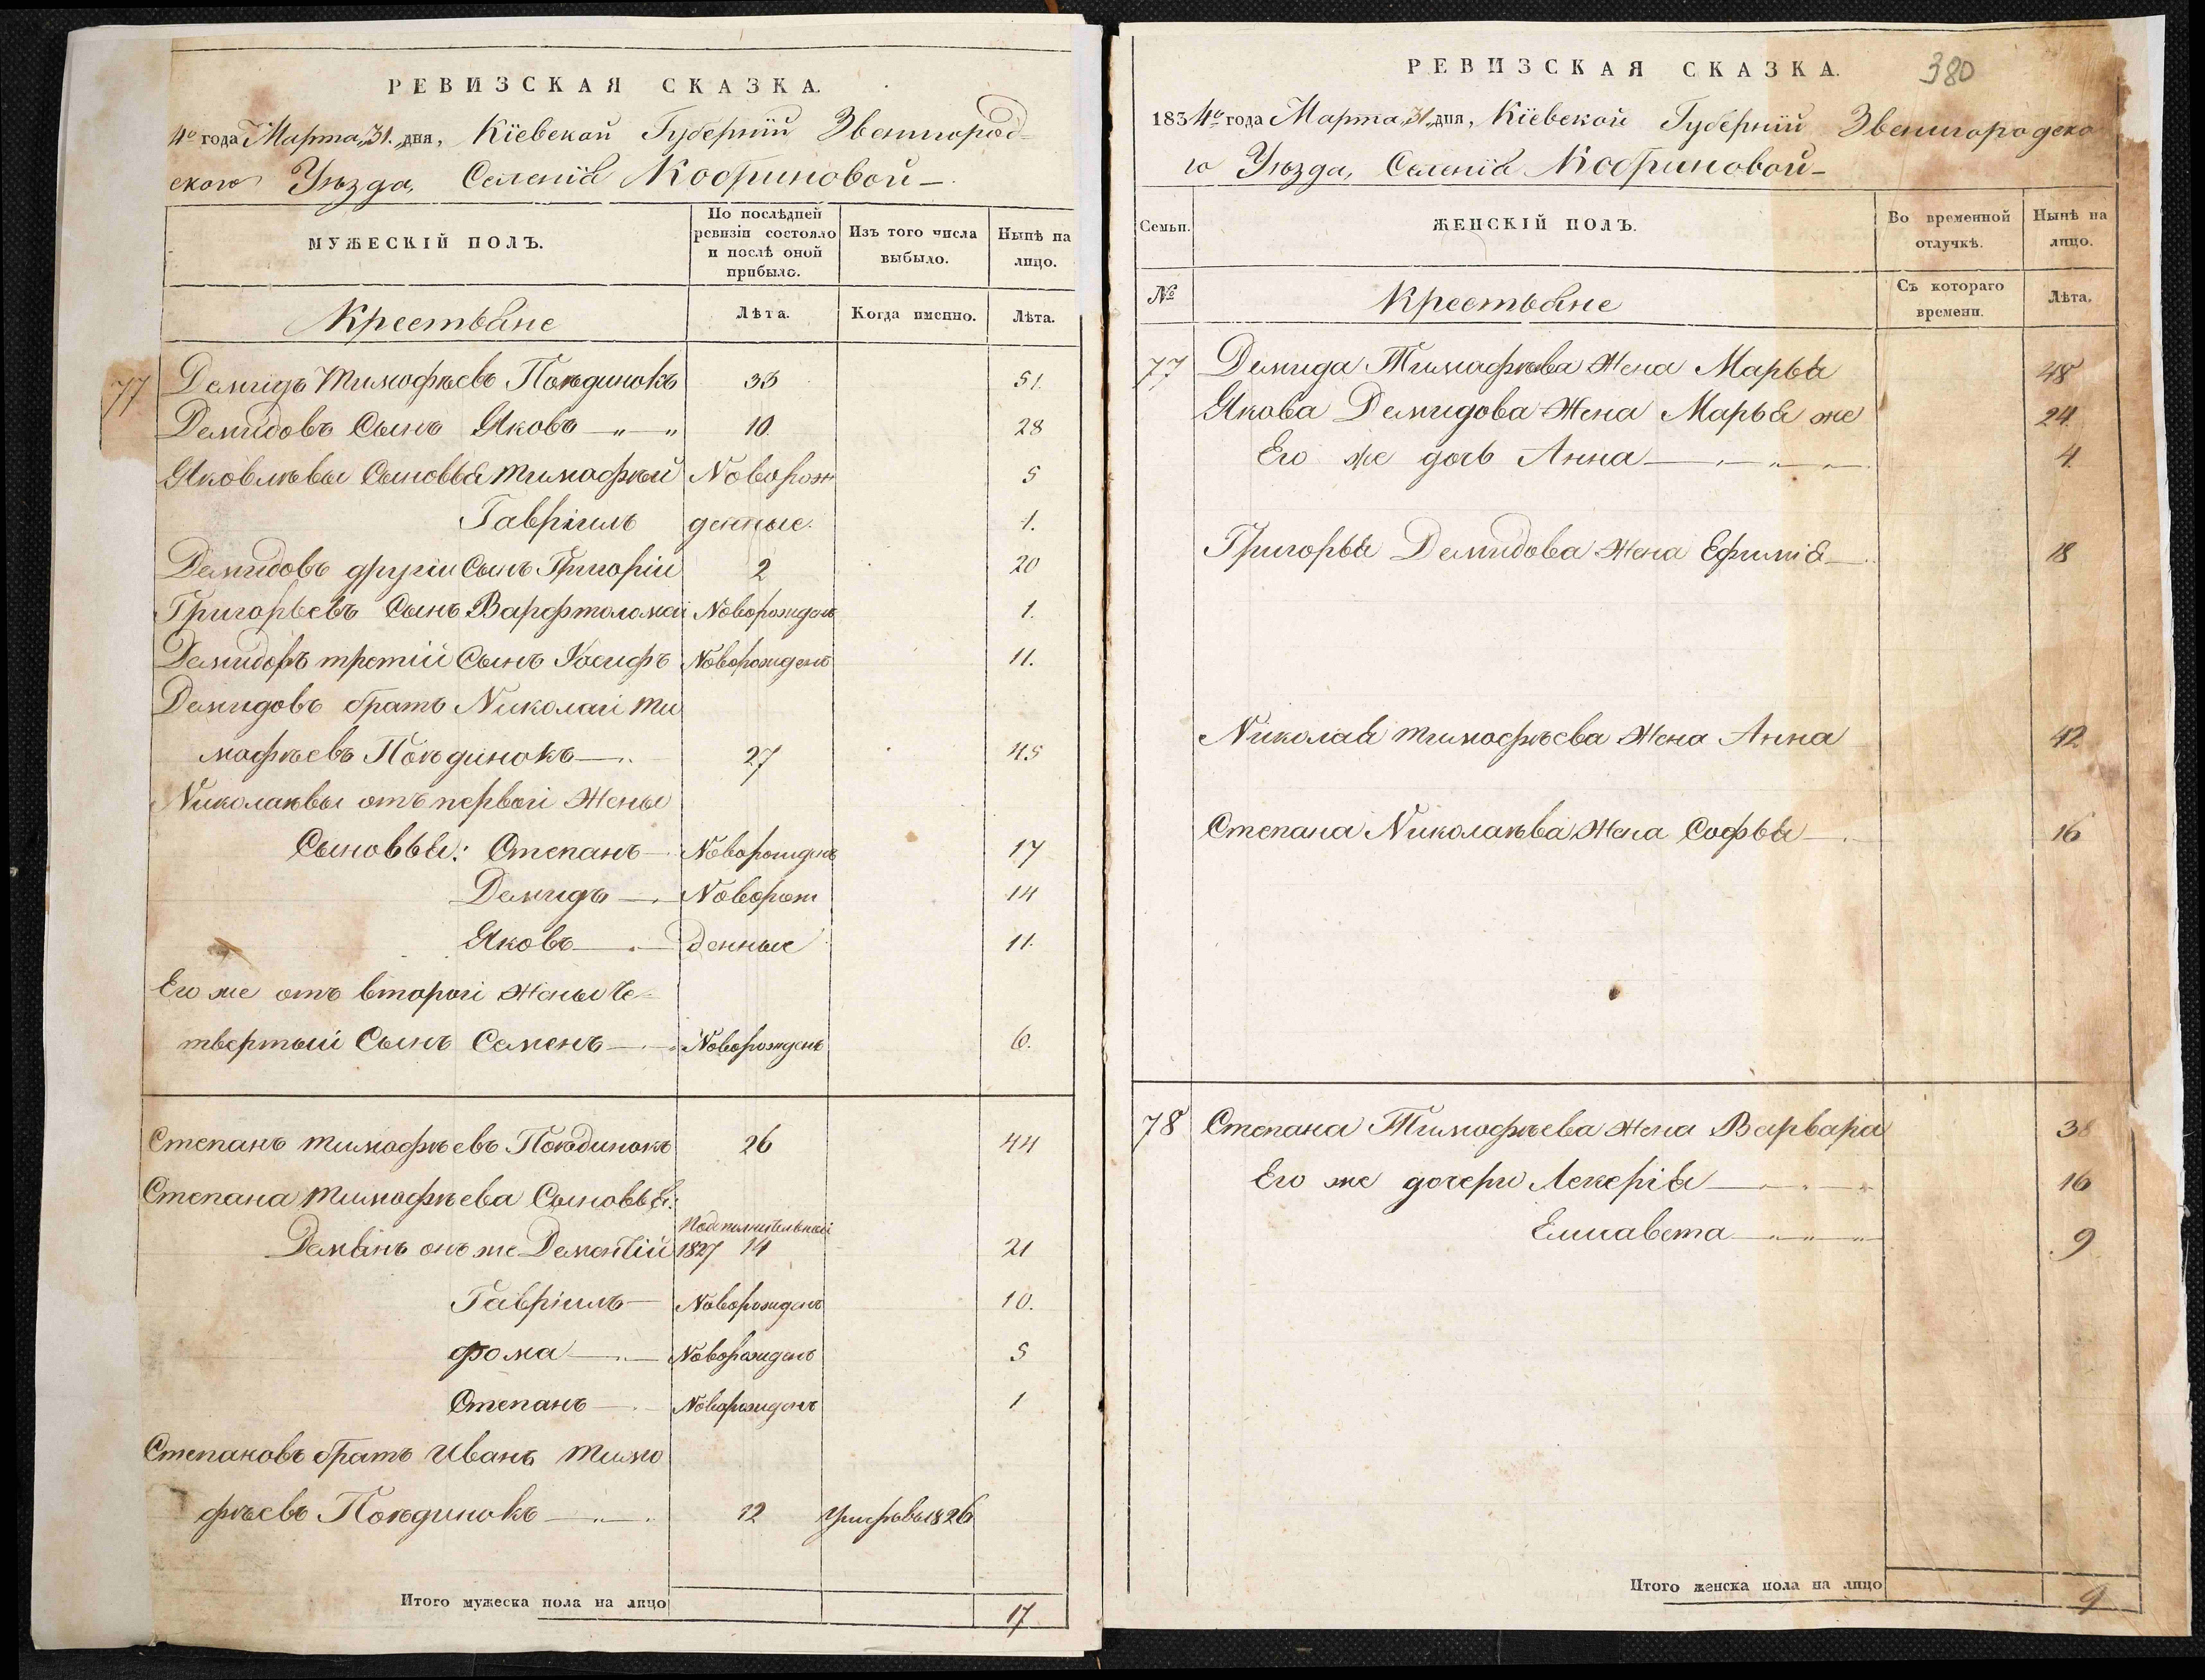 РЕВИЗСКАЯ СКАЗКА.
4го года Марта „31. дня, Кіевской Губерніи Звенигород-
ского Уѣзда, Селенія Кобриновой
МУЖЕСКІЙ ПОЛЪ.
По послѣдней ревизіи состояло и послѣ оной прибыло.
Изъ того числа выбыло.
Нынѣ на лицо.
Крестьяне
Лѣта.
Когда именно.
Лѣта.
77 Демидъ Тимофѣевъ Поѣдинокъ 33 51.
Демидовъ Сынъ Яковъ 10. 28
Яковлѣвы Сыновья Тимофѣй Новорож 5
Гавріилъ денные. 1.
Демидовъ другіи Сынъ Григоріи 2 20
Григорьевъ Сынъ Варфтоломей Новорожденъ 1.
Демидовъ третіи Сынъ Іосифъ Новорожденъ 11.
Демидовъ братъ Николаі Ти
мофѣевъ Поѣдинокъ 27 45
Николаѣвы отъ первоі Жены
Сыновья: Степанъ Новорожденъ 17
Демидъ Новорож 14
Яковъ денные 11.
Его же отъ второі Жены Че-
твертыі Сынъ Семенъ Новорожденъ 6.
Степанъ Тимофѣевъ Поѣдинокъ 26 44
Степана Тимофѣева Сыновья:
Демянъ онъ же Дементій 1827 14 21
Гавріилъ Новорожденъ 10.
Фома Новорожденъ 5
Степанъ Новорожденъ 1
Степановъ братъ Иванъ Тимо
фѣевъ Поѣдинокъ 12 1826
Итого мужеска пола на лицо 17
РЕВИЗСКАЯ СКАЗКА.
380
1834го года Марта „31„ дня, Кіевской Губерніи Звенигородско
го Уѣзда, Селенія Кобриновой
Семьи.
ЖЕНСКІЙ ПОЛЪ.
Во временной отлучкѣ.
Нынѣ на лицо.
№
Крестьяне
Съ котораго времени.
Лѣта.
77 Демида Тимофѣева Жена Марья 48
Якова Демидова Жена Марья же 24
Его же дочь Анна 4.
Григорья Демидова Жена Ефимія 18
Николая Тимофѣева Жена Анна 42
Степана Николаѣва Жена Софья 16
78 Степана Тимофѣева Жена Варвара 38
Его же дочери Лекерія 16
Елисавета 9
Итого женска пола на лицо 9